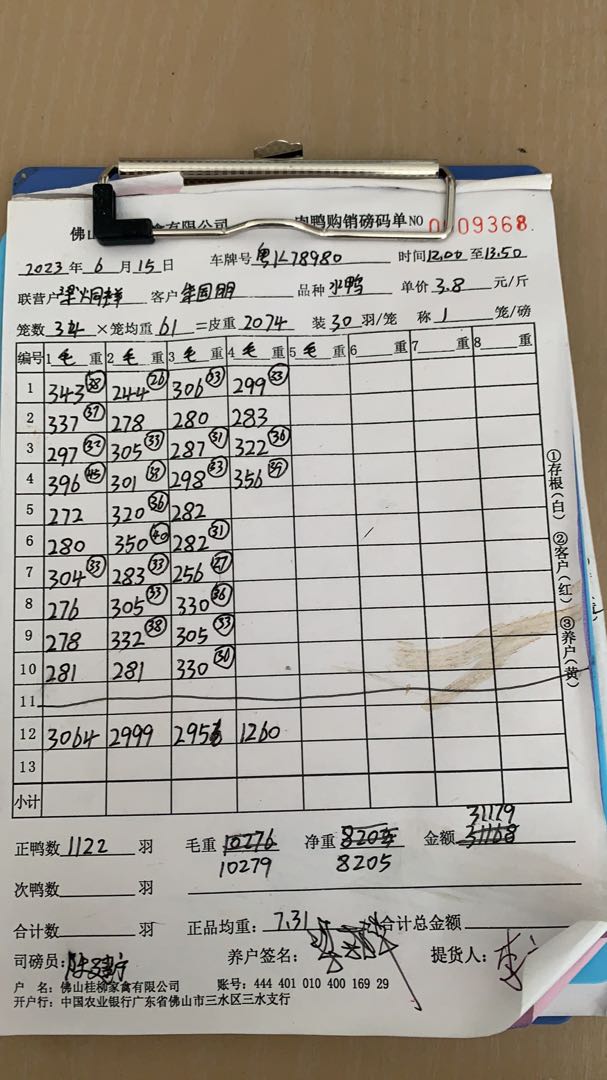 佛山 家禽有限公司 肉鸭购销磅码单 NO 0009368
2023年6月15日 车牌号 粤K78980 时间12.00至13.50
联营户 梁炳祥 客户 品种 水鸭 单价 3.8 元/斤
笼数 34 ×笼均重 61 =皮重 2074 装 30 羽/笼 称 1 笼/磅
编号 1 毛 重 2 毛 重 3 毛 重 4 毛 重 5 毛 重 6 重 7 重 8 重
1 343 (38) 244 (26) 306 (33) 299 (33)
2 337 (37) 278 280 283
3 297 (32) 305 (33) 287 (31) 322 (36)
4 396 (45) 301 (33) 298 (33) 356 (39)
5 272 320 (36) 282
6 280 350 (40) 282 (31)
7 304 (33) 283 (33) 256 (27)
8 276 305 (33) 330 (36)
9 278 332 (38) 305 (33)
10 281 281 330 (36)
11
12 3064 2999 2956 1260
13
小计
①存根(白) ②客户(红) ③养户(黄)
31179
正鸭数 1122 羽 毛重 10276 净重 8202 金额 31168
10279 8205
次鸭数 羽
合计数 羽 正品均重: 7.31 合计总金额
司磅员: 养户签名: 提货人: 李
户 名: 佛山桂柳家禽有限公司 账号: 444 401 010 400 169 29
开户行: 中国农业银行广东省佛山市三水区三水支行